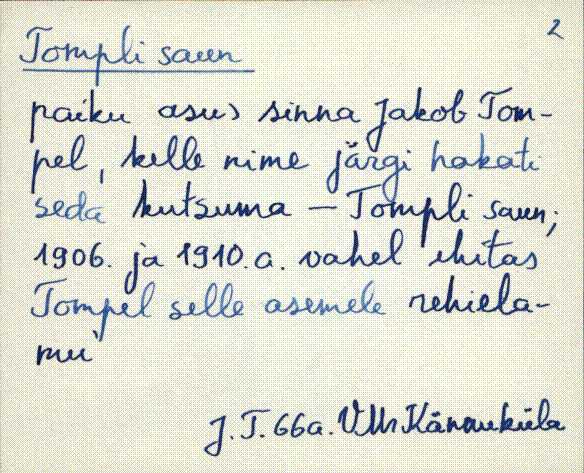 2
Tompli saun
paiku asus sinna Jakob Tom-
pel, kelle nime järgi hakati
seda kutsuma – Tompli saun;
1906. ja 1910.a. vahel ehitas
Tompel selle asemele rehiela-
mu
J. T. 66a.